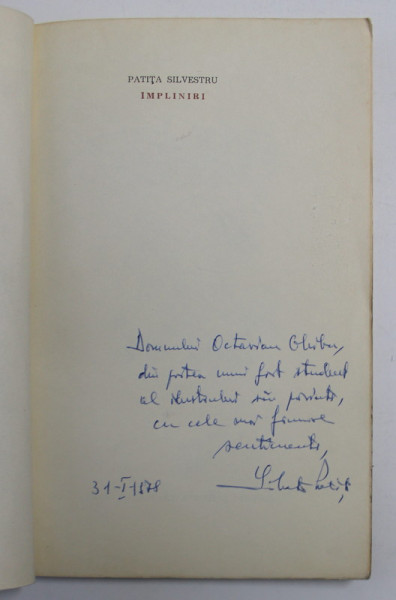 PATIȚA SILVESTRU
ÎMPLINIRI
Domnului Octavian Ghibu,
din partea unui fost student
al ilustrului său părinte,
cu cele mai frumoase
sentimente,
31-I-1978